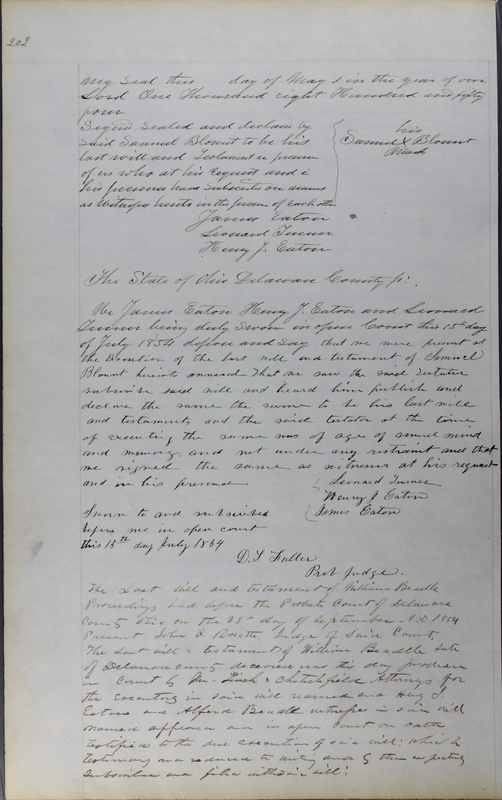 202
my seal this day of May in the year of our
Lord One Thousand eight Hundred and fifty
four
Signd Sealed and declaird by
Said Samuel Blount to be his
last will and Testament in presence
of us who at his request and in
his presence have Subscribed our names
as Witness hereto in the presence of each other
his
Samuel X Blount
Mark
James Eaton
Leonard Turner
Henry J. Eaton
The State of Ohio Delaware County ss.
We James Eaton Henry J. Eaton and Leonard
Turner being duly Sworn in open Court this 15th day
of July 1854 depose and Say that we were present at
the Execution of the last will and testament of Samuel
Blount hereto annexed That we saw the said testator
subscribe said will and heard him publish and
declare the same the same to be his last will
and testament and the said testator at the time
of executing the same was of age of sound mind
and memory, and not under any restraint and that
we signed the same as witnesses at his request
and in his presence
Leonard Turner
Henry J Eaton
James Eaton
Sworn to and subscribed
before me in open court
this 15th day July 1864
D. T. Fuller
Prob Judge.
The Last will and testament of William Beadle
Proceedings had before the Probate Court of Delaware
County Ohio, on the 23d day of September A.D. 1854
Present John Judge of Said Court,
The last will & testament of William Beadle late
of Delaware county deceased was this day produced
in Court by & Attorneys for
the executrix in said will named and
Eaton and Alfred Beadle witnesses to said will
named appeared and in open court on oath
testified to the due execution of said will: which
testimony was reduced to writing and by them respectively
Subscribed and filed with said will: